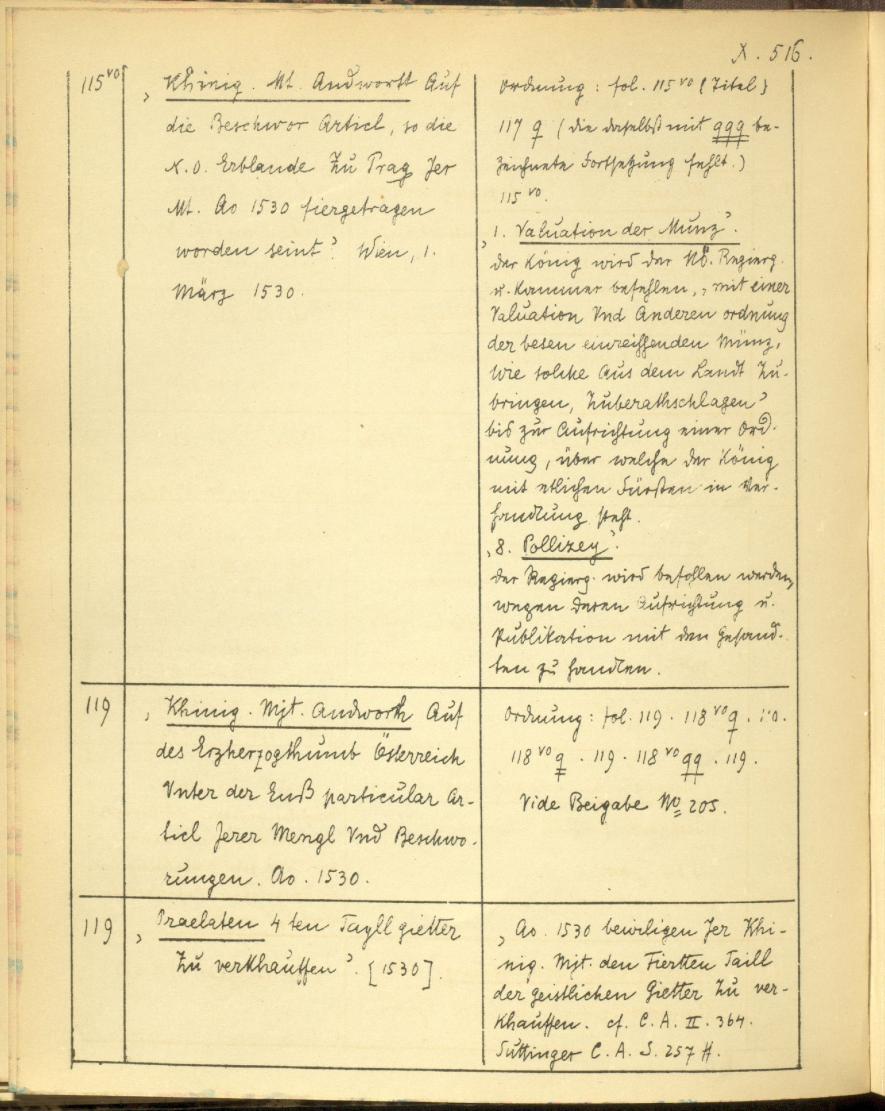 X. 516.
115 vo
„Khinig. Mt. Andwortt Auf
die Beschwor Articl, so die
N. O. Erblande Zu Prag Jer
Mt. Ao 1530 fiergetragen
worden seint“. Wien, 1.
März 1530.
Ordnung: fol. 115 vo (Titel)
117 q (die daselbst mit qqq be-
zeichnete Fortsetzung fehlt.)
115 vo.
„1. Valuation der Munz“.
der König wird der NÖ. Regierg.
u. Kammer befehlen, „mit einer
Valuation Vnd Anderen ordnung
der besen einreissenden Münz,
wie solche Aus dem Landt Zu-
bringen, Zuberathschlagen“
bis zur Aufrichtung einer Ord-
nung, über welche der König
mit etlichen Fürsten in Ver-
handlung steht.
„8. Pollizey“.
der Regierg. wird befohlen werden,
wegen deren Aufrichtung u.
Publikation mit den Gesand-
ten zu handlen.
119
„Khinig. Mjt. Andworth Auf
des Erzherzogthumb Österreich
Vnter der Enß particular Ar-
ticl Jerer Mengl Vnd Beschwo-
rungen. Ao. 1530.
Ordnung: fol. 119. 118 vo q.
118 vo q. 119. 118 vo qq. 119.
Vide Beigabe No 205.
119
„Praelaten 4 ten Tayll gietter
Zu verkhauffen“. [1530].
„Ao. 1530 bewiligen Jer Khi-
nig. Mjt. den Fiertten Taill
der geistlichen Gietter Zu ver-
khauffen. cf. C. A. II. 364.
Suttinger C. A. S. 257 ff.